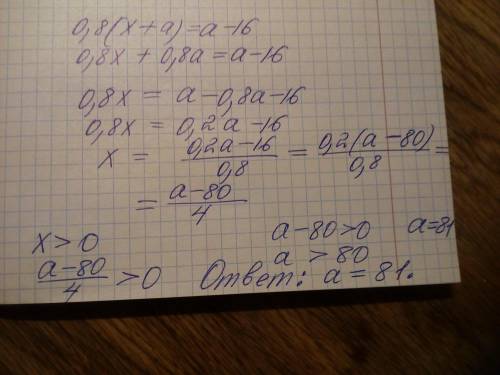 0,8(x+a)=a-16
0,8x + 0,8a = a-16
0,8x = a-0,8a-16
0,8x = 0,2a-16
x = \frac{0,2a-16}{0,8} = \frac{0,2(a-80)}{0,8} =
= \frac{a-80}{4}
x > 0
\frac{a-80}{4} > 0
a-80>0
a > 80
a=81
Ответ: a = 81.